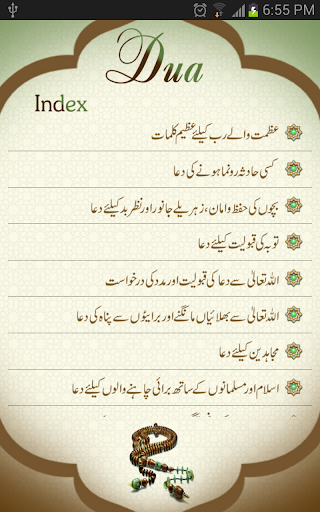 6:55 PM
Dua
Index
عظمت والے رب کیلئے عظیم کلمات
کسی حادثہ رونما ہونے کی دعا
بچوں کی حفظ و امان، زہریلے جانور اور نظر بد کیلئے دعا
توبہ کی قبولیت کیلئے دعا
اللہ تعالیٰ سے دعا کی قبولیت اور مدد کی درخواست
اللہ تعالیٰ سے بھلائیاں مانگنے اور برائیوں سے پناہ کی دعا
مجاہدین کیلئے دعا
اسلام اور مسلمانوں کے ساتھ برائی چاہنے والوں کیلئے دعا